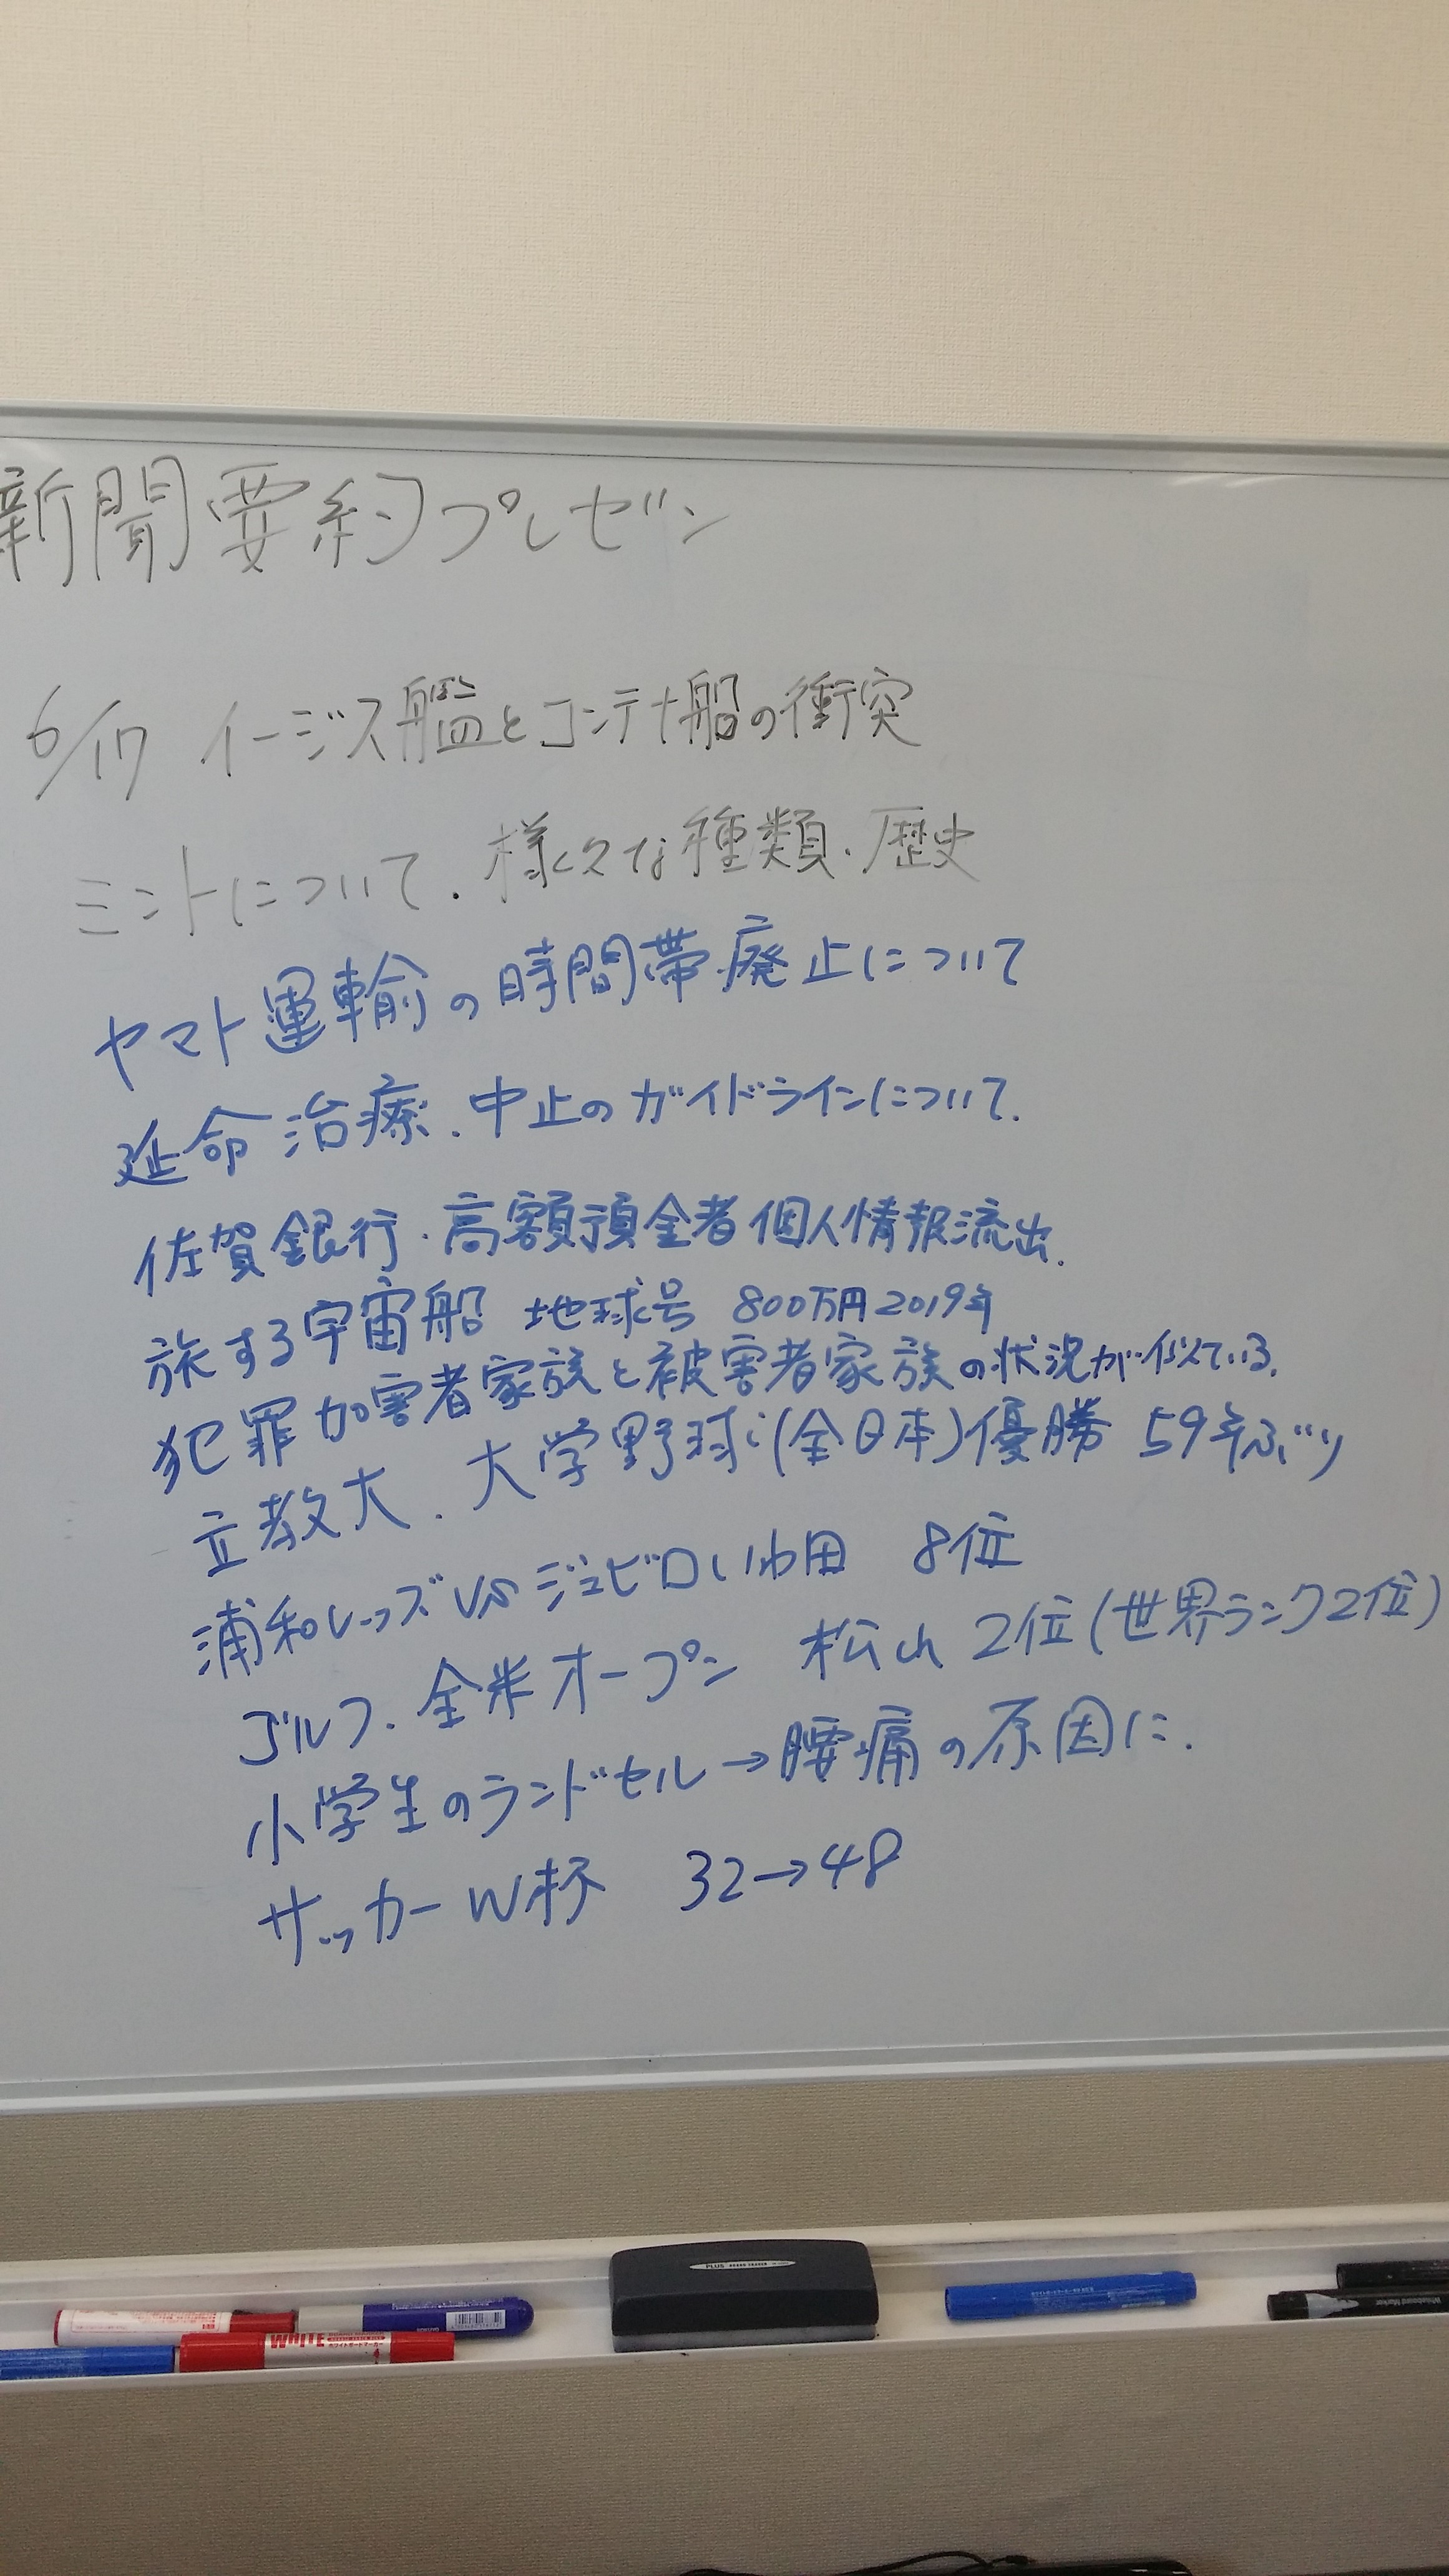 新聞要約プレゼン
6/17 イージス艦とコンテナ船の衝突
ミントについて.様々な種類.歴史
ヤマト運輸の時間帯廃止について
延命治療.中止のガイドラインについて.
佐賀銀行.高額預金者個人情報流出.
旅する宇宙船 地球号 800万円2019年
犯罪加害者家族と被害者家族の状況が似ている.
立教大.大学野球(全日本)優勝 59年ぶり
浦和レッズvsジュビロいわ田 8位
ゴルフ.全米オープン 松山 2位(世界ランク2位)
小学生のランドセル→腰痛の原因に.
サッカーW杯 32→48
PLUS
WHITE
ホワイトボードマーカー
Whiteboard Marker